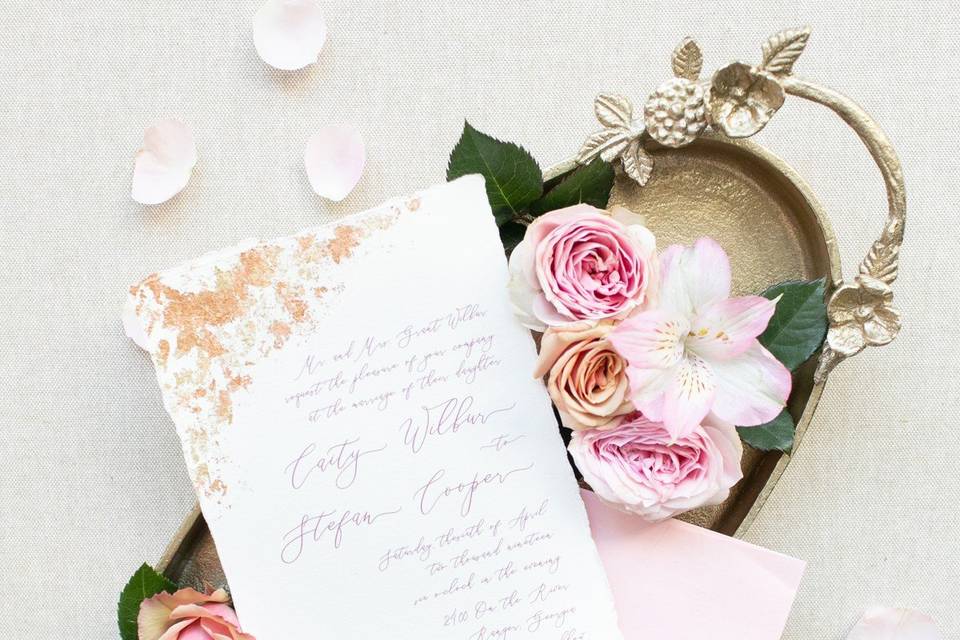 Mr. and Mrs. Grant Wilbur
request the pleasure of your company
at the marriage of their daughter
Caity Wilbur
to
Stefan Cooper
Saturday, of April
two thousand nineteen
six o'clock in the evening
2400 On the River
Ranger, Georgia